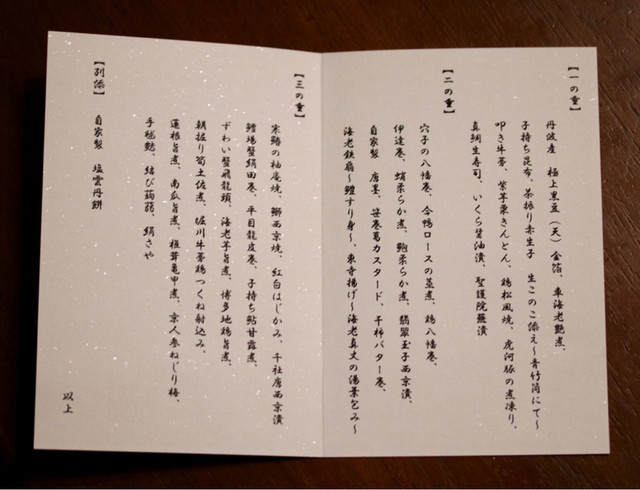 【一の重】
丹波産 極上黒豆(天)金箔、車海老艶煮、
子持ち昆布、茶振り赤生子 生このこ添え〜青竹筒にて〜
叩き牛蒡、紫芋栗きんとん、鶏松風焼、虎河豚の煮凍り、
真鯛生寿司、いくら醤油漬、聖護院蕪漬
【二の重】
穴子の八幡巻、合鴨ロースの蒸煮、鶏八幡巻、
伊達巻、蛸柔らか煮、鮑柔らか煮、翡翠玉子西京漬、
自家製 唐墨、笹巻葛カスタード、干柿バター巻、
海老鉄扇〜鱧すり身〜、東寺揚げ〜海老真丈の湯葉包み〜
【三の重】
寒鰆の柚庵焼、鰤西京焼、紅白はじかみ、千社唐西京漬
鱈場蟹絹田巻、平目龍皮巻、子持ち鮎甘露煮、
ずわい蟹飛龍頭、海老芋旨煮、博多地鶏旨煮、
朝掘り筍土佐煮、堀川牛蒡鶏つくね射込み、
蓮根旨煮、南瓜旨煮、椎茸亀甲煮、京人参ねじり梅、
手毬麩、結び蒟蒻、絹さや
【別添】 自家製 塩雲丹餅
以上